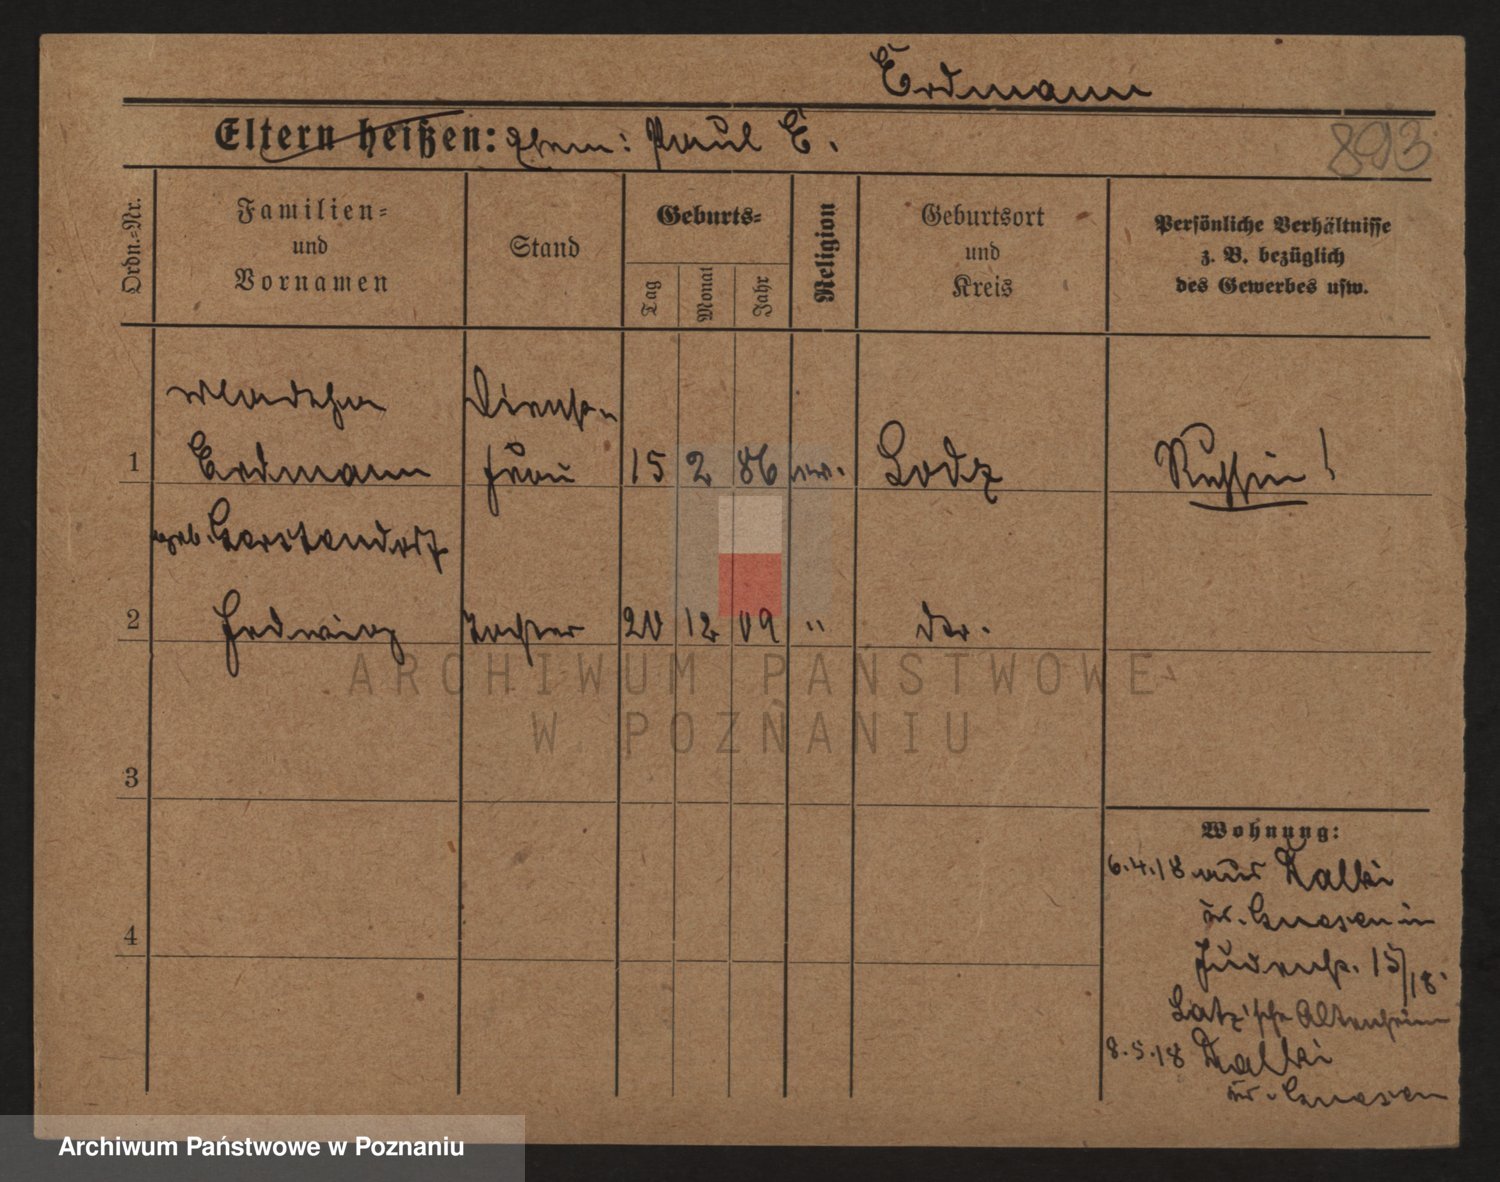 Erdmann
Eltern heißen: Ehem: Paul E.
893
Ordn.-Nr.
Familien-
und
Vornamen
Stand
Geburts-
Tag
Monat
Jahr
Religion
Geburtsort
und
Kreis
Persönliche Verhältnisse
z. B. bezüglich
des Gewerbes usw.
1
Erdmann
frau
15
2
86
ev.
Lodz
Russin!
geb.
2
Hedwig
Tochter
20
12
09
"
do.
3
4
Wohnung:
6.4.18 aus
Kr. Gnesen in
Judenstr. 15/18.
Altenheim
8.5.18
Kr. Gnesen
ARCHIWUM PAŃSTWOWE
W POZNANIU
Archiwum Państwowe w Poznaniu